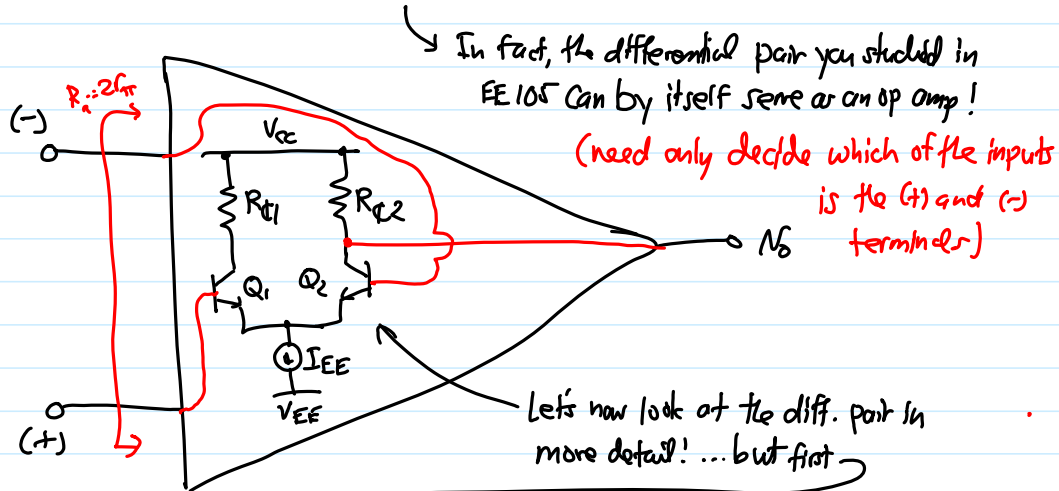 In fact, the differential pair you studied in
EE105 can by itself serve as an op amp!
(need only decide which of the inputs
is the (+) and (-)
terminals)
Ri=2rπ
(-)
VCC
RC1
RC2
Q1
Q2
IEE
VEE
(+)
vo
Let's now look at the diff. pair in
more detail! ...but first